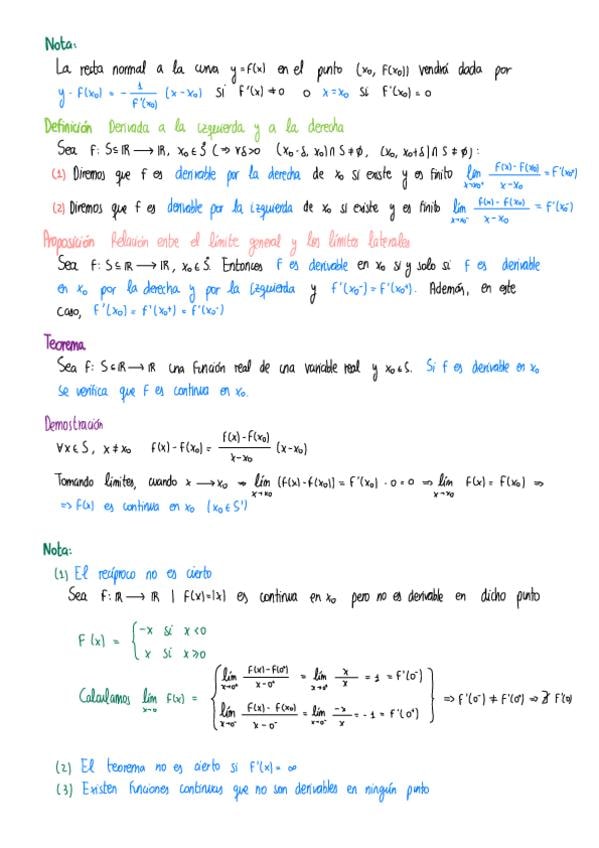 Nota:
La recta normal a la curva y=f(x) en el punto (x₀, f(x₀)) vendrá dada por
y - f(x₀) = - 1/f'(x₀) (x-x₀) si f'(x) ≠ 0 o x=x₀ si f'(x₀) = 0
Definición Derivada a la izquierda y a la derecha
Sea f: S⊆ℝ → ℝ, x₀∈S̊ (⇒ ∀δ>0 (x₀-δ, x₀)∩S≠∅, (x₀, x₀+δ)∩S≠∅):
(1) Diremos que f es derivable por la derecha de x₀ si existe y es finito lím x→x₀⁺ (f(x)-f(x₀))/(x-x₀) = f'(x₀⁺)
(2) Diremos que f es derivable por la izquierda de x₀ si existe y es finito lím x→x₀⁻ (f(x)-f(x₀))/(x-x₀) = f'(x₀⁻)
Proposición Relación entre el límite general y los límites laterales
Sea f: S⊆ℝ → ℝ, x₀∈S̊. Entonces f es derivable en x₀ si y solo si f es derivable
en x₀ por la derecha y por la izquierda y f'(x₀⁻) = f'(x₀⁺). Además, en este
caso, f'(x₀) = f'(x₀⁺) = f'(x₀⁻)
Teorema
Sea f: S⊆ℝ → ℝ una función real de una variable real y x₀∈S. Si f es derivable en x₀
se verifica que f es continua en x₀.
Demostración
∀x∈S, x≠x₀ f(x)-f(x₀) = (f(x)-f(x₀))/(x-x₀) (x-x₀)
Tomando límites, cuando x → x₀ → lím x→x₀ (f(x)-f(x₀)) = f'(x₀)·0=0 ⇒ lím x→x₀ f(x) = f(x₀) ⇒
⇒ f(x) es continua en x₀ (x₀∈S')
Nota:
(1) El recíproco no es cierto
Sea f: ℝ → ℝ | f(x)=|x| es continua en x₀ pero no es derivable en dicho punto
f(x) = { -x si x<0
x si x≥0
Calculamos lím x→0 f(x) = { lím x→0⁺ (f(x)-f(0⁺))/(x-0⁺) = lím x→0⁺ x/x = 1 = f'(0⁻)
lím x→0⁻ (f(x)-f(x₀))/(x-0⁻) = lím x→0⁻ -x/x = -1 = f'(0⁺) } ⇒ f'(0⁻) ≠ f'(0⁺) ⇒ ∄ f'(0)
(2) El teorema no es cierto si f'(x) = ∞
(3) Existen funciones continuas que no son derivables en ningún punto